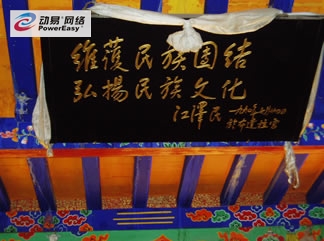 动易网络
PowerEasy
維護民族團结
弘揚民族文化
江澤民